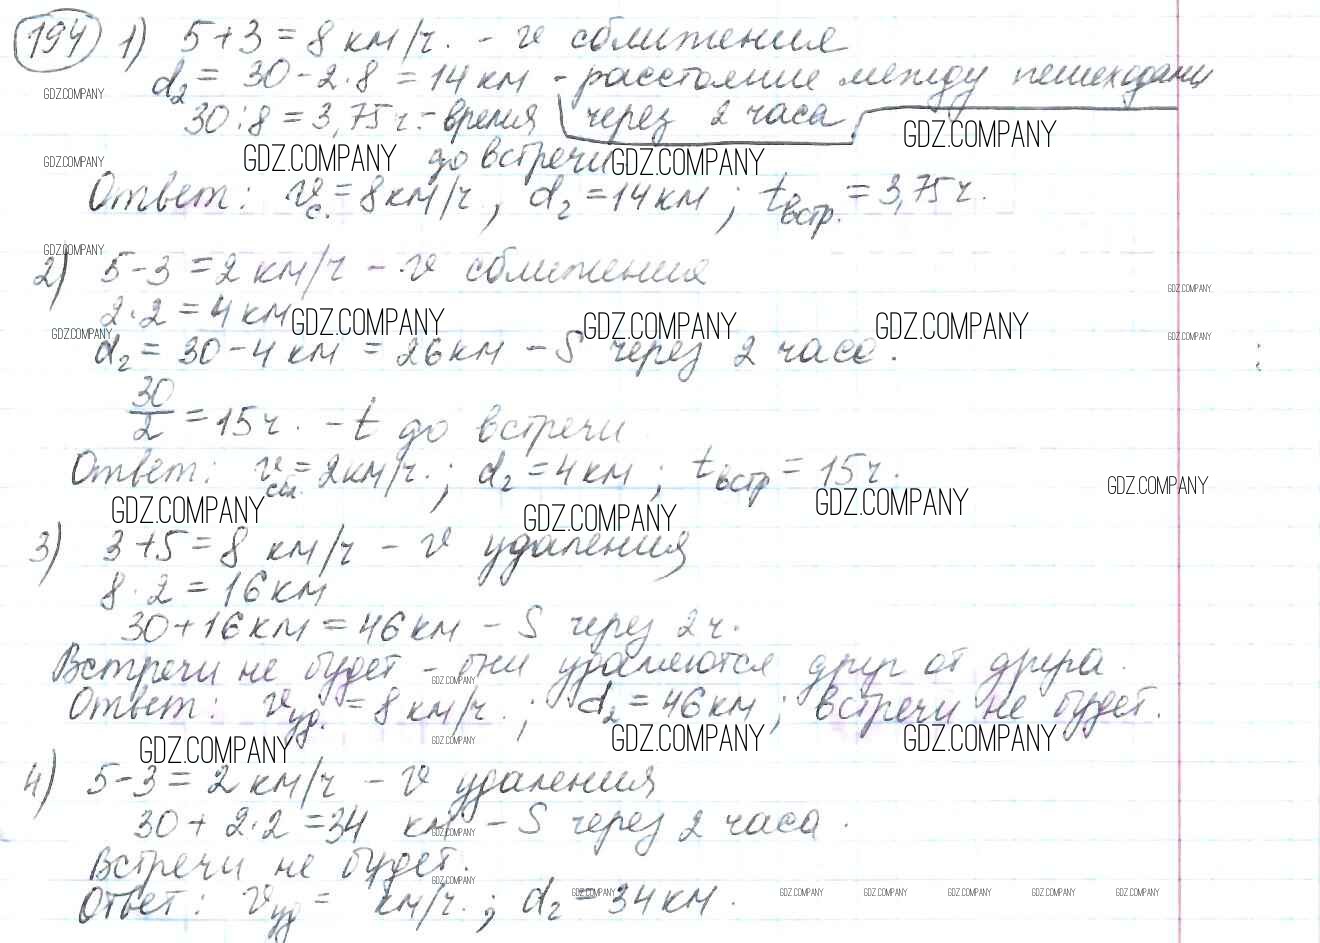 194 1) 5+3=8 км/ч. - v сближения
d₂ = 30-2·8 = 14 км - расстояние между пешеходами
GDZ.COMPANY
30:8=3,75ч.- время через 2 часа
GDZ.COMPANY
GDZ.COMPANY GDZ.COMPANY до встречи GDZ.COMPANY
Ответ: vс.=8км/ч, d₂=14км; tвстр.=3,75ч.
GDZ.COMPANY
2) 5-3=2км/ч - v сближения
GDZ.COMPANY
2·2=4км GDZ.COMPANY GDZ.COMPANY GDZ.COMPANY
GDZ.COMPANY GDZ.COMPANY
d₂ = 30-4км = 26км - S через 2 часа.
30/2 = 15ч. - t до встречи
Ответ: vсбл.=2км/ч.; d₂=4км; tвстр=15ч.
GDZ.COMPANY GDZ.COMPANY GDZ.COMPANY GDZ.COMPANY
3) 3+5=8 км/ч - v удаления
8·2=16км
30+16км=46км - S через 2ч.
Встречи не будет - они удаляются друг от друга.
GDZ.COMPANY
Ответ: vуд.=8км/ч.; d₂=46км; встречи не будет.
GDZ.COMPANY GDZ.COMPANY GDZ.COMPANY GDZ.COMPANY
4) 5-3=2км/ч - v удаления
30+2·2=34 км - S через 2 часа.
GDZ.COMPANY
Встречи не будет.
GDZ.COMPANY
Ответ: vуд= км/ч.; d₂=34км.
GDZ.COMPANY GDZ.COMPANY GDZ.COMPANY GDZ.COMPANY GDZ.COMPANY GDZ.COMPANY